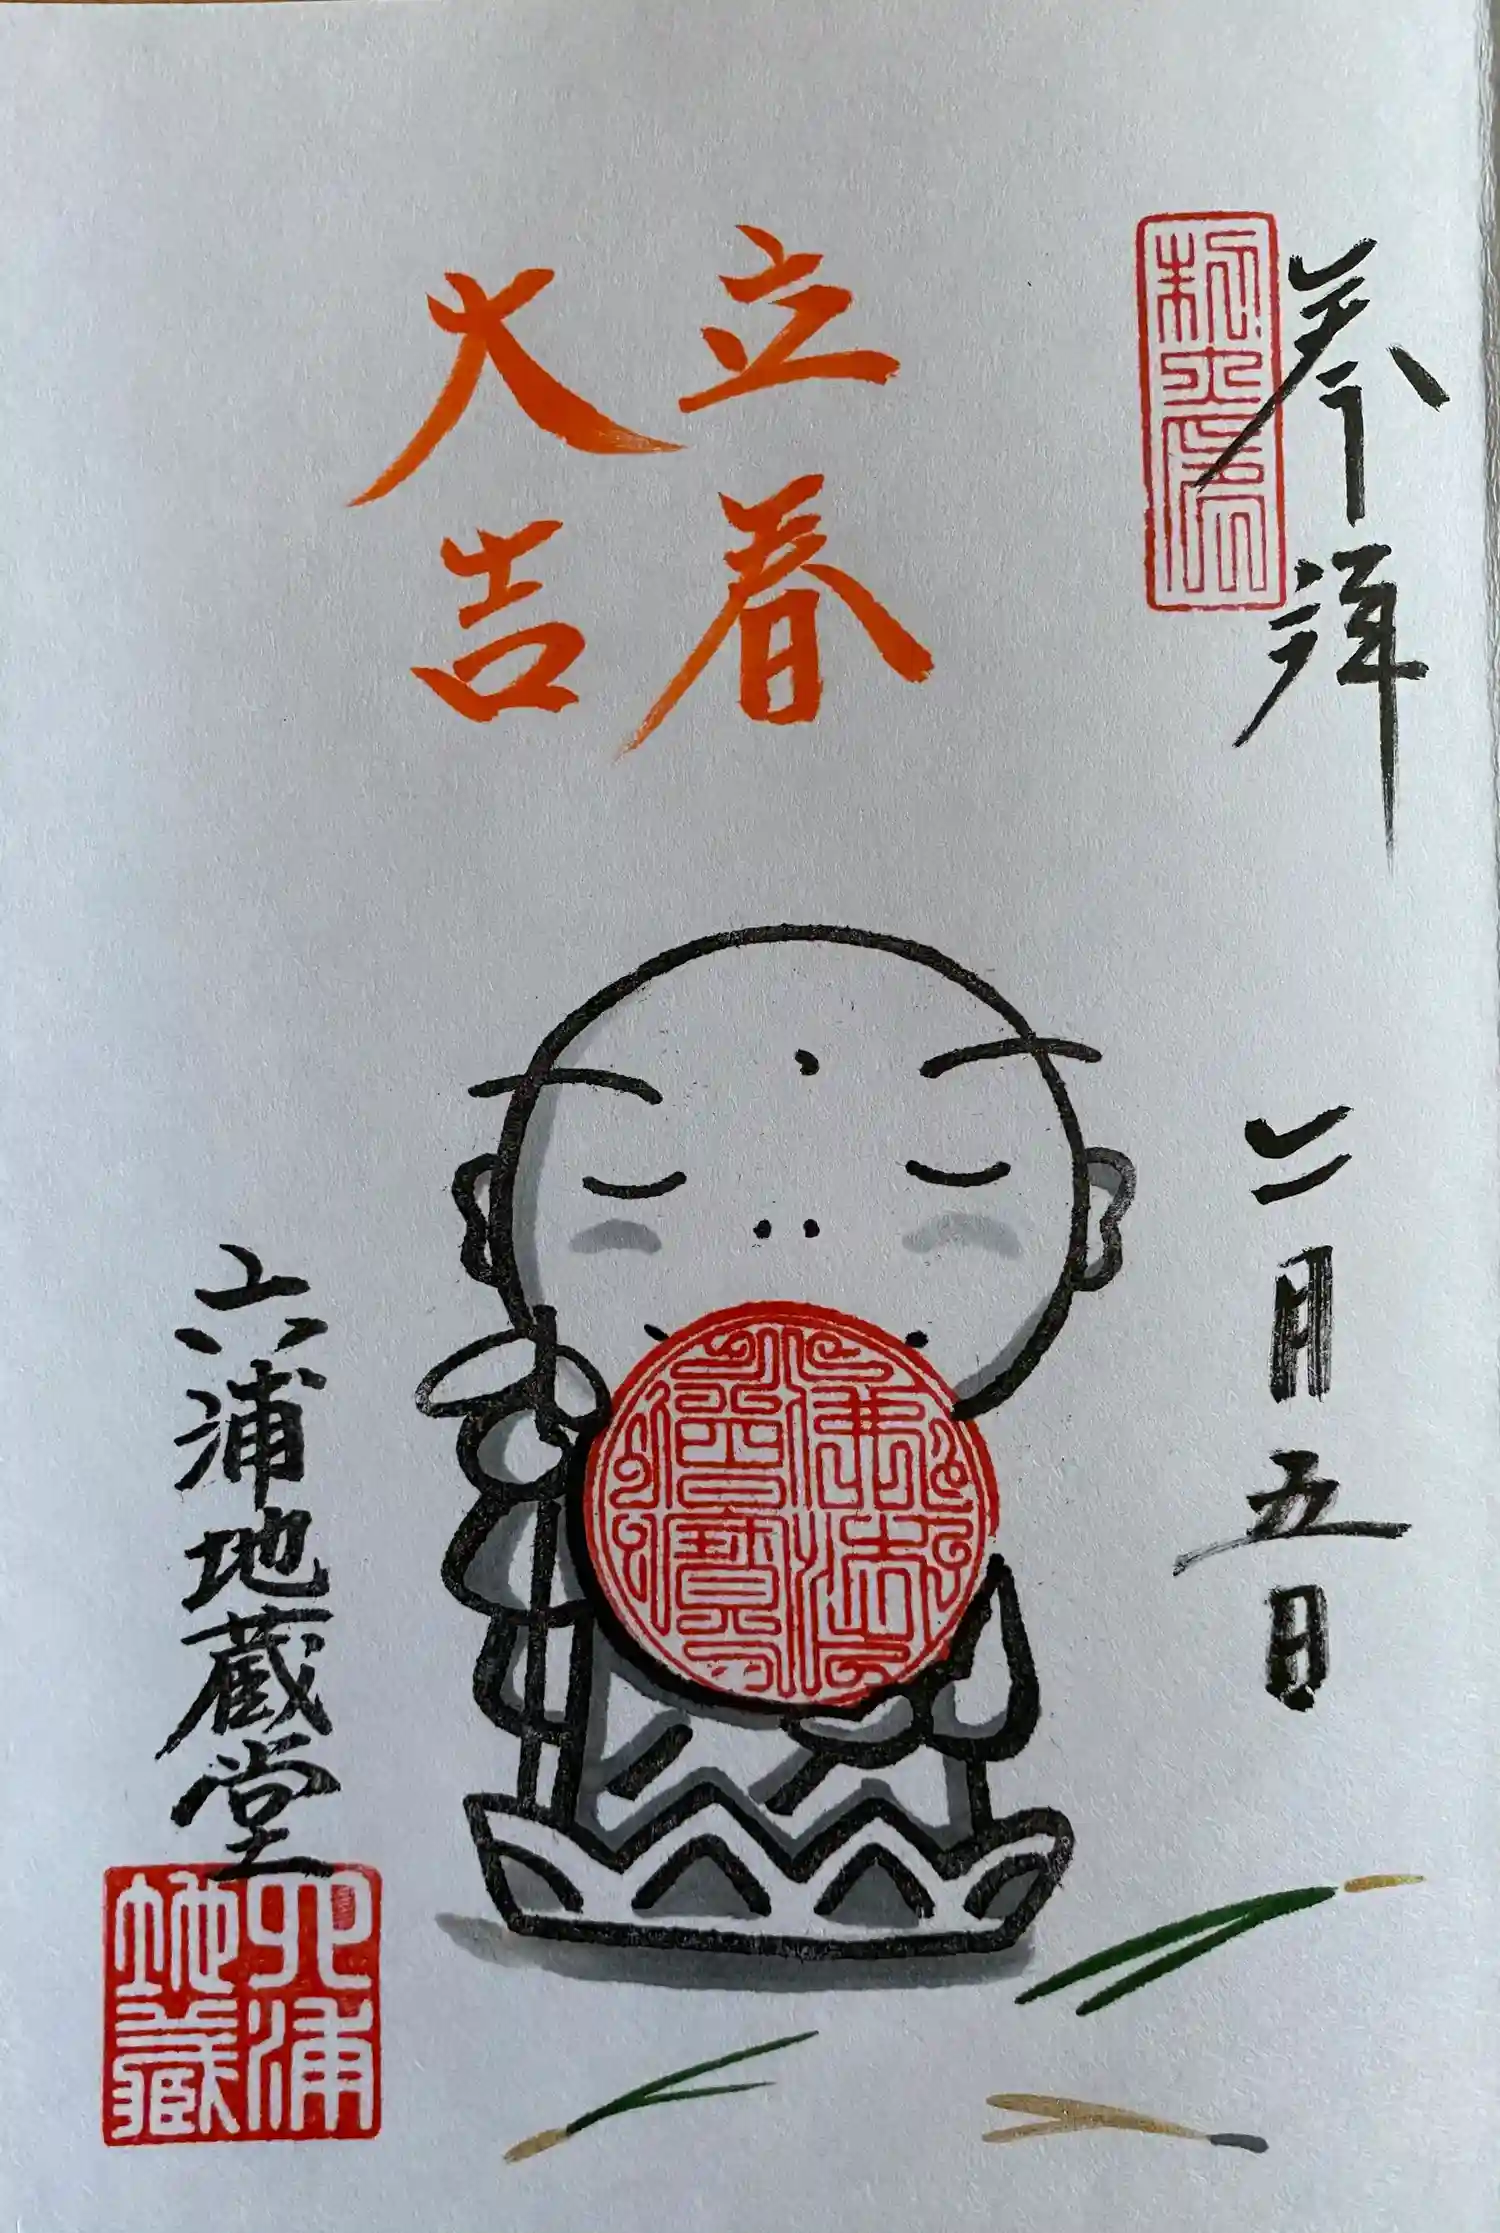 奉拝
立春
大吉
二月五日
佛法僧寶
六浦地蔵堂
六浦
地蔵